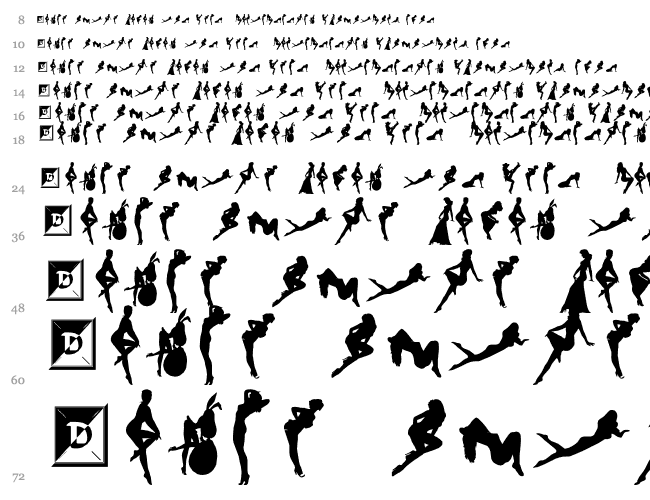 8
10
12
14
16
18
D
24
D
36
D
48
D
60
D
72